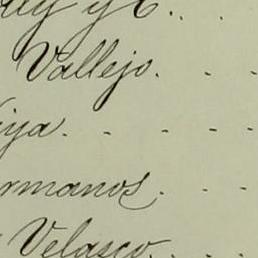 y C.
Vallejo.
rmanos.
Velasco.